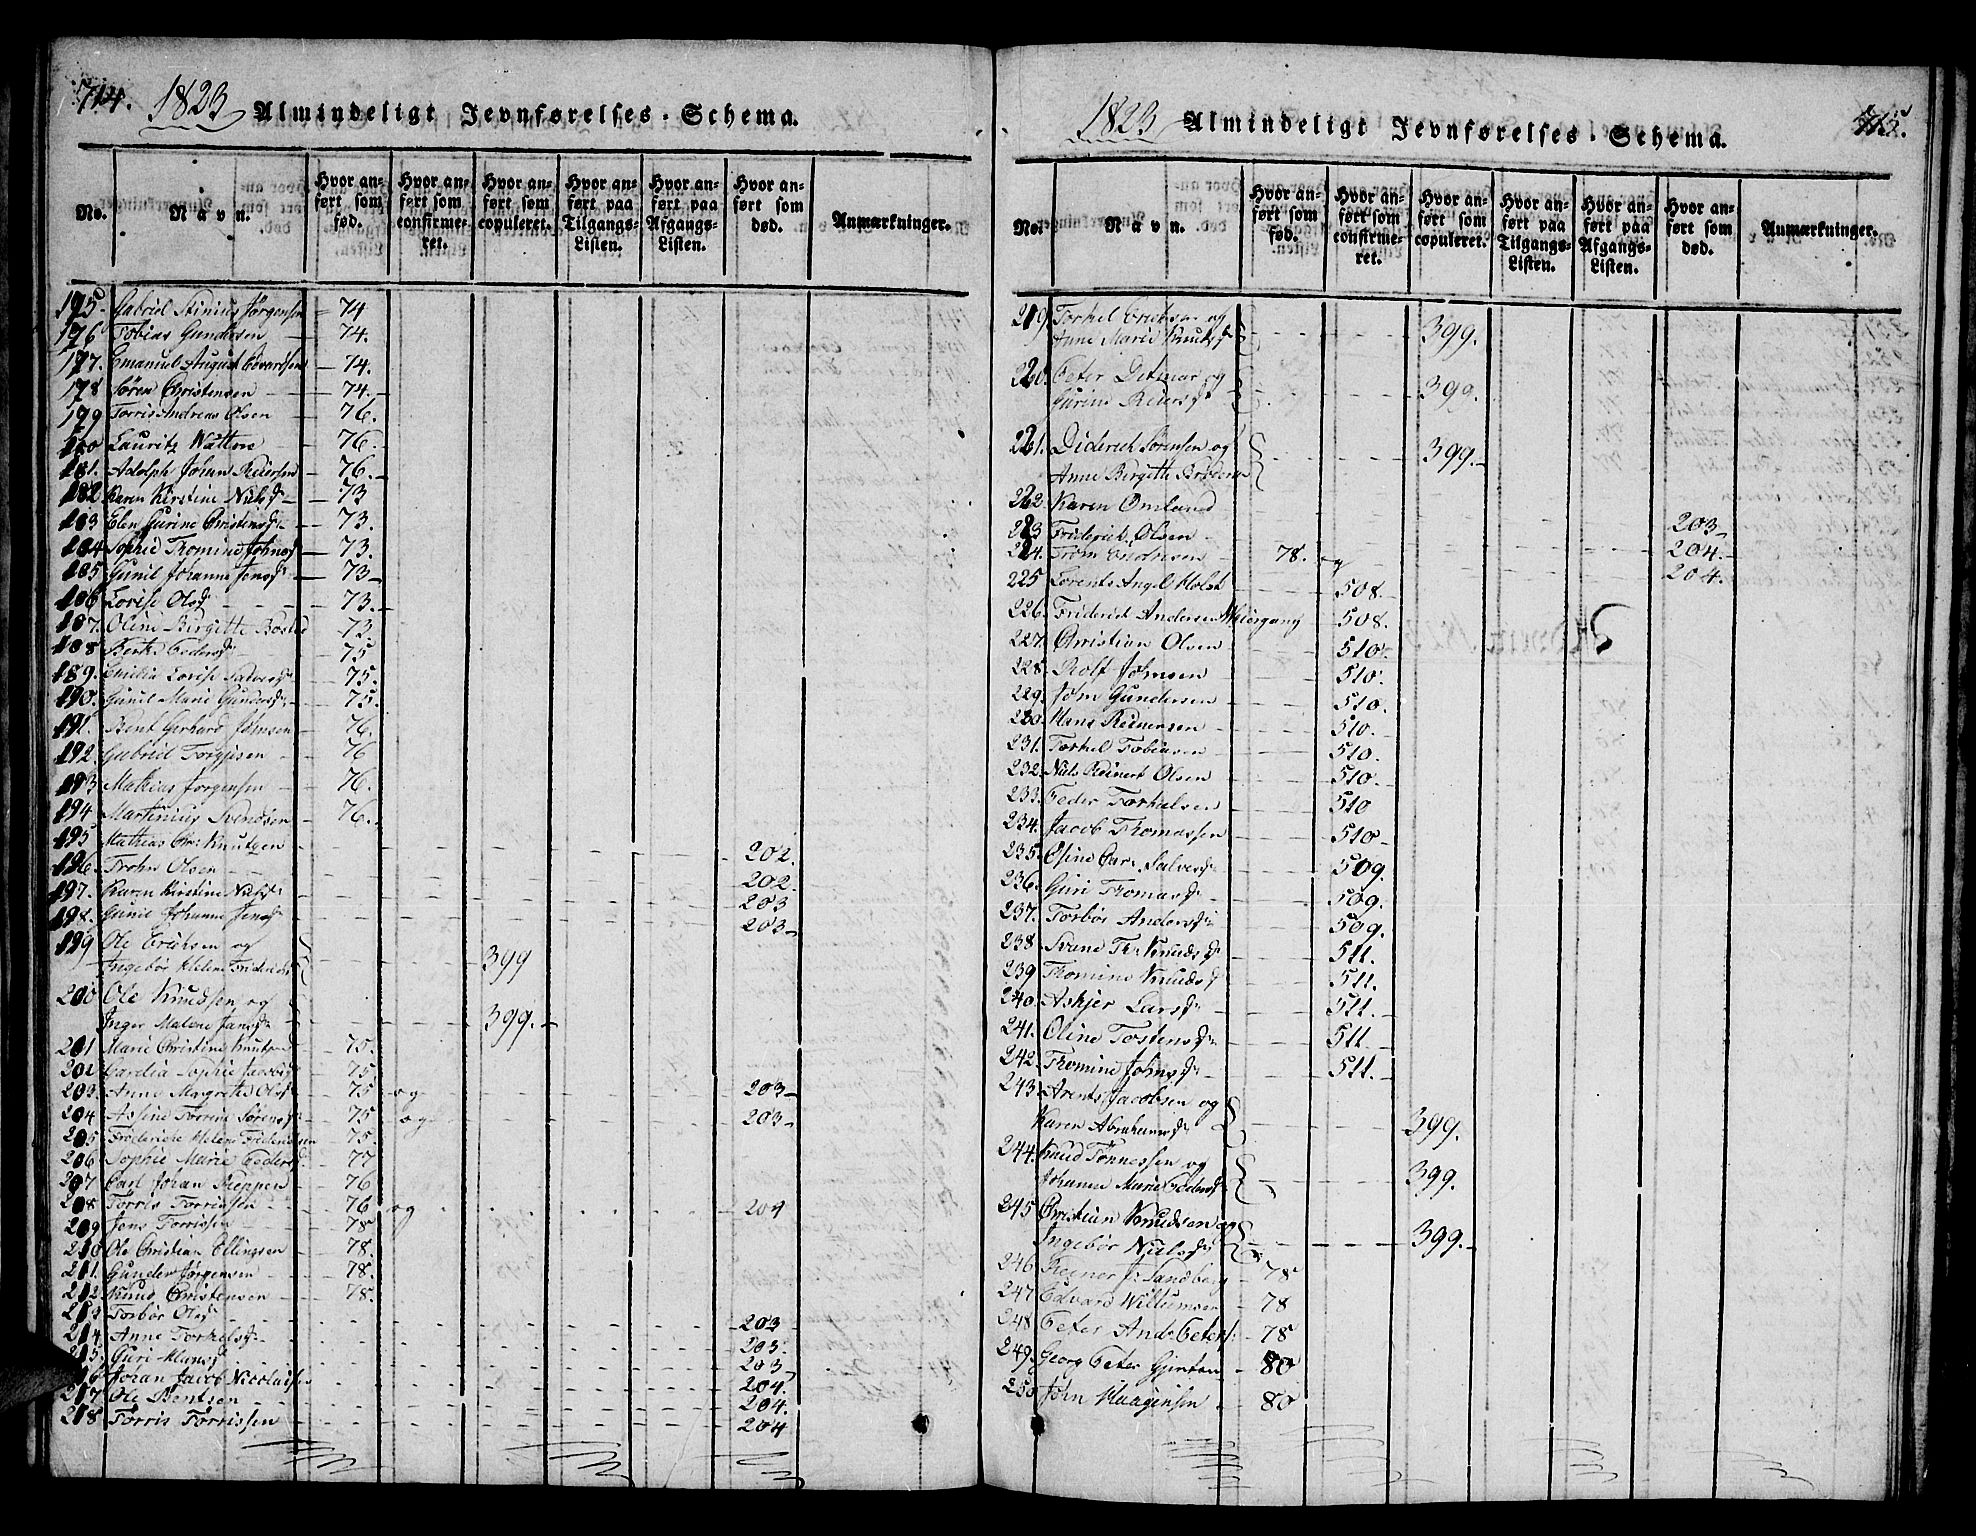 714. 1823 Almindeligt Jevnførelses-Schema.
No. Navn. Hvor anført som fød. Hvor anført som confirmeret. Hvor anført som copuleret. Hvor anført paa Tilgangs-Listen. Hvor anført paa Afgangs-Listen. Hvor anført som død. Anmærkninger.
175 Gabriel Stinius Jørgensen 74
176 Tobias Gundersen 74.
177. Emanuel August Edvardsen 74.
178 Søren Christensen 74.
179 Torris Andreas Olsen 76.
180 Lauritz 76.
181. Adolph Johan Reiersen 76.
182 Karen Kirstine Nielsd 73
183 Elen Gurine Christensd 73.
184 Sophie Thomine Johnsd 73.
185 Gunil Johanne Jensd 73
186 Lovise Olsd 73.
187. Oline Birgitte 73
188 Berthe Pedersd 75
189. Emilia Lovise 75.
190. Gunil Marie Gundersd 75.
191. Bent Gerhard Johnsen 76.
192. Gabriel Torgjusen 76
193 Mathias Jørgensen 76.
194 Martinius Svendsen 76.
195 Mathias Chr: Knutzen 202.
196. Trohn Olsen 202
197. Karen Kirstine Nielsd 203
198. Gunil Johanne Jensd 203
199 Ole Erichsen og
Ingebør Helene Fridrichsd 399
200 Ole Knudsen og
Inger Malene Jansd 399.
201 Marie Christine 75.
202 Sophie Jacobsd 75
203. Anne Magrethe Olsd 75 og 203
204 Assine Torrine Sørensd 75 og 203
205 Frideriche Helene 75
206 Sophie Marie Pedersd 77
207 Carl Johan Keppen 76
208 Torris Torrissen 76 og 204
209 Jens Torrissen 78
210 Ole Christian Ellingsen 78.
211. Gunder Jørgensen 78.
212 Knud Christensen 78.
213 Torbør Olsd 203
214 Anne Torkelsd 203.
215. Guri Hansd 203
216 Johan Jacob Nicolaisen 204.
217 Ole Bentsen 204.
218 Torris Torrissen 204
1823 Almindeligt Jevnførelses-Schema. 715.
No. Navn. Hvor anført som fød. Hvor anført som confirmeret. Hvor anført som copuleret. Hvor anført paa Tilgangs-Listen. Hvor anført paa Afgangs-Listen. Hvor anført som død. Anmærkninger.
219 Torkel Erichsen og
Anne Marie Knutsd 399.
220. Peter Ditmar og
Gurine Reiersd 399.
221. Diderich Sørensen og
Anne Birgitte 399.
222. Karen Omland 203
223 Friderich Olsen 204.
224. 78. og 204.
225 Lorents Angel Holst 508.
226. Friderich Andersen 508.
227. Christian Olsen 510.
228. Rolf Johnsen 510.
229. John Gundersen 510.
230. Hans Reiersen 510.
231. Torkel Tobiasen 510.
232. Niels Reinert Olsen 510.
233. Peder Torkelsen 510
234. Jacob Thomassen 510
235. Oline Car: Salvesd 509.
236. Guri Thomasd 509.
237. Torbør Andersd 509.
238 Svane Th: Knudsd 511.
239 Thomine Knudsd 511.
240. Askjer Larsd 511.
241. Oline Tostensd 511
242. Thomine Johnsd 511.
243. Arents Jacobsen og
Karen Abrahamsd 399.
244. Knud Tønnessen og
Johanne Marie Pedersd 399.
245 Christian Knudsen og
Ingebør Nielsd 399.
246 Sandberg 78
247 Edvard Willumsen 78
248 Peter And: Peters: 78
249. Georg Peter 80
250 John Haagensen 80